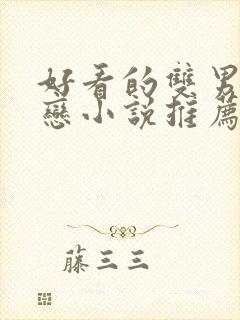 好看的雙男
戀小說推薦
藤三三